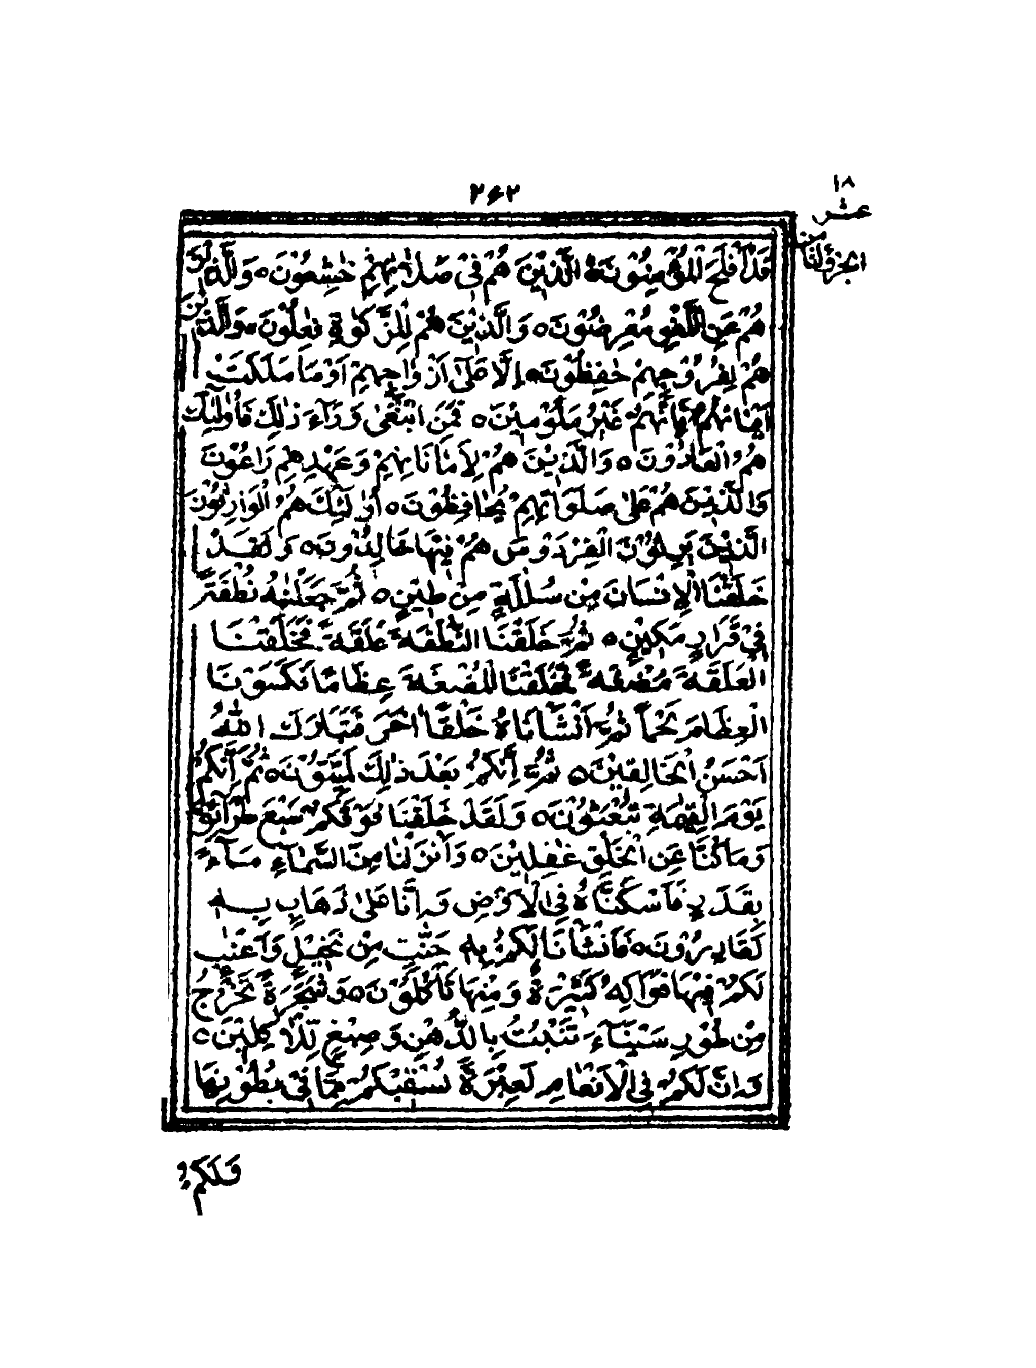 ۲۶۲
۱۸
عشر
من
الجزء
قَدْ أَفْلَحَ الْمُؤْمِنُوْنَ ۝ الَّذِيْنَ هُمْ فِيْ صَلَاتِهِمْ خٰشِعُوْنَ ۝ وَالَّذِيْنَ
هُمْ عَنِ اللَّغْوِ مُعْرِضُوْنَ ۝ وَالَّذِيْنَ هُمْ لِلزَّكٰوةِ فٰعِلُوْنَ ۝ وَالَّذِيْنَ
هُمْ لِفُرُوْجِهِمْ حٰفِظُوْنَ ۝ اِلَّا عَلٰى اَزْوَاجِهِمْ اَوْ مَا مَلَكَتْ
اَيْمَانُهُمْ فَاِنَّهُمْ غَيْرُ مَلُوْمِيْنَ ۝ فَمَنِ ابْتَغٰى وَرَآءَ ذٰلِكَ فَاُولٰئِكَ
هُمُ الْعَادُوْنَ ۝ وَالَّذِيْنَ هُمْ لِاَمَانَاتِهِمْ وَعَهْدِهِمْ رَاعُوْنَ
وَالَّذِيْنَ هُمْ عَلٰى صَلَوَاتِهِمْ يُحَافِظُوْنَ ۝ اُولٰئِكَ هُمُ الْوَارِثُوْنَ
الَّذِيْنَ يَرِثُوْنَ الْفِرْدَوْسَ هُمْ فِيْهَا خَالِدُوْنَ ۝ وَلَقَدْ
خَلَقْنَا الْاِنْسَانَ مِنْ سُلٰلَةٍ مِنْ طِيْنٍ ۝ ثُمَّ جَعَلْنٰهُ نُطْفَةً
فِيْ قَرَارٍ مَكِيْنٍ ۝ ثُمَّ خَلَقْنَا النُّطْفَةَ عَلَقَةً فَخَلَقْنَا
الْعَلَقَةَ مُضْغَةً فَخَلَقْنَا الْمُضْغَةَ عِظَامًا فَكَسَوْنَا
الْعِظَامَ لَحْمًا ثُمَّ اَنْشَأْنَاهُ خَلْقًا اٰخَرَ فَتَبَارَكَ اللّٰهُ
اَحْسَنُ الْخَالِقِيْنَ ۝ ثُمَّ اِنَّكُمْ بَعْدَ ذٰلِكَ لَمَيِّتُوْنَ ۝ ثُمَّ اِنَّكُمْ
يَوْمَ الْقِيٰمَةِ تُبْعَثُوْنَ ۝ وَلَقَدْ خَلَقْنَا فَوْقَكُمْ سَبْعَ طَرَائِقَ
وَمَا كُنَّا عَنِ الْخَلْقِ غٰفِلِيْنَ ۝ وَاَنْزَلْنَا مِنَ السَّمَآءِ مَآءً
بِقَدَرٍ فَاَسْكَنَّاهُ فِي الْاَرْضِ وَاِنَّا عَلٰى ذَهَابٍ بِهٖ
لَقَادِرُوْنَ ۝ فَاَنْشَأْنَا لَكُمْ بِهٖ جَنّٰتٍ مِنْ نَخِيْلٍ وَاَعْنٰبٍ
لَكُمْ فِيْهَا فَوَاكِهُ كَثِيْرَةٌ وَمِنْهَا تَأْكُلُوْنَ ۝ وَشَجَرَةً تَخْرُجُ
مِنْ طُوْرِ سَيْنَآءَ تَنْبُتُ بِالدُّهْنِ وَصِبْغٍ لِّلْاٰكِلِيْنَ ۝
وَاِنَّ لَكُمْ فِي الْاَنْعَامِ لَعِبْرَةً نُسْقِيْكُمْ مِمَّا فِيْ بُطُوْنِهَا
وَلَكُمْ